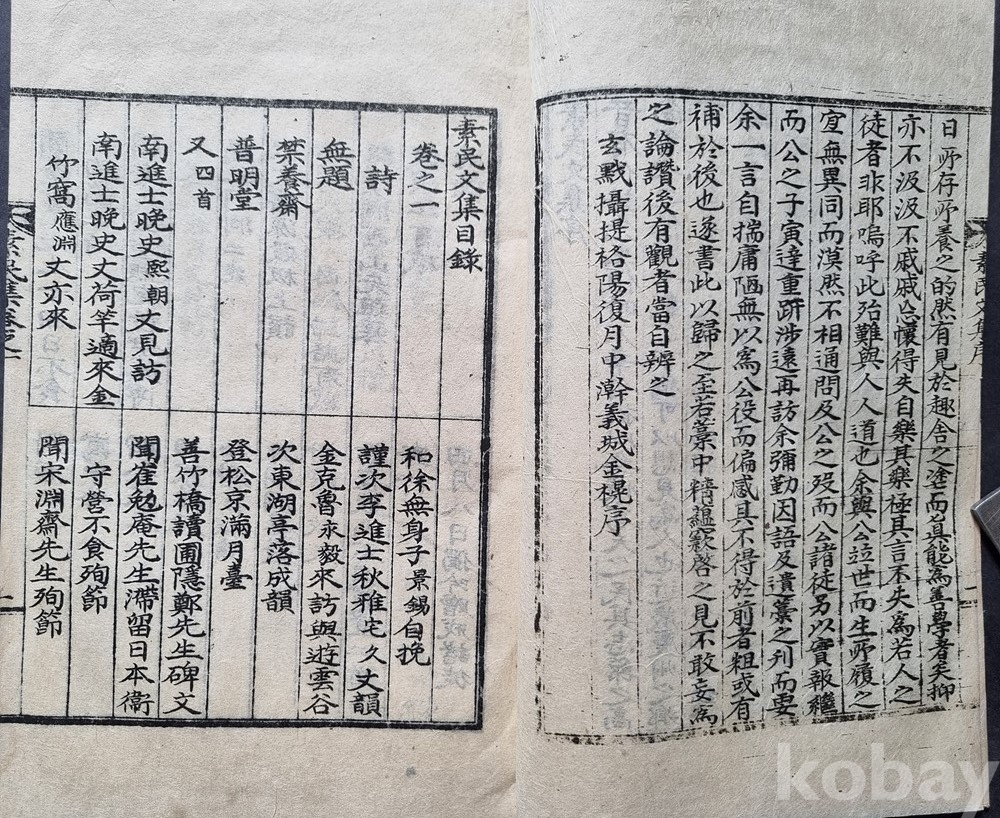 素民文集序
一
日所存所養之的然有見於趣舍之途而眞能爲善學者矣抑
亦不汲汲不戚戚忘懷得失自樂其樂極其言不失爲若人之
徒者非耶嗚呼此殆難與人人道也余與公並世而生所履之
宜無異同而漠然不相通問及公之歿而公諸徒另以實報繼
而公之子寅達重趼涉遠再訪余彌勤因語及遺藁之刊而要
余一言自揣庸陋無以爲公役而偏感其不得於前者粗或有
補於後也遂書此以歸之至若藁中精蘊窾啓之見不敢妄爲
之論讚後有觀者當自辨之
玄黓攝提格陽復月中澣義城金榥序
素民文集目錄
卷之一
詩
和徐無身子景錫自挽
無題
謹次李進士秋雅宅久丈韻
禁養齋
金克魯永毅來訪與遊雲谷
普明堂
次東湖亭落成韻
又四首
登松京滿月臺
善竹橋讀圃隱鄭先生碑文
南進士晚史熙朝丈見訪
聞崔勉庵先生滯留日本衞
南進士晚史丈荷竿適來金
守營不食殉節
竹窩應淵丈亦來
聞宋淵齋先生殉節
素民文集卷之一
一
kobay